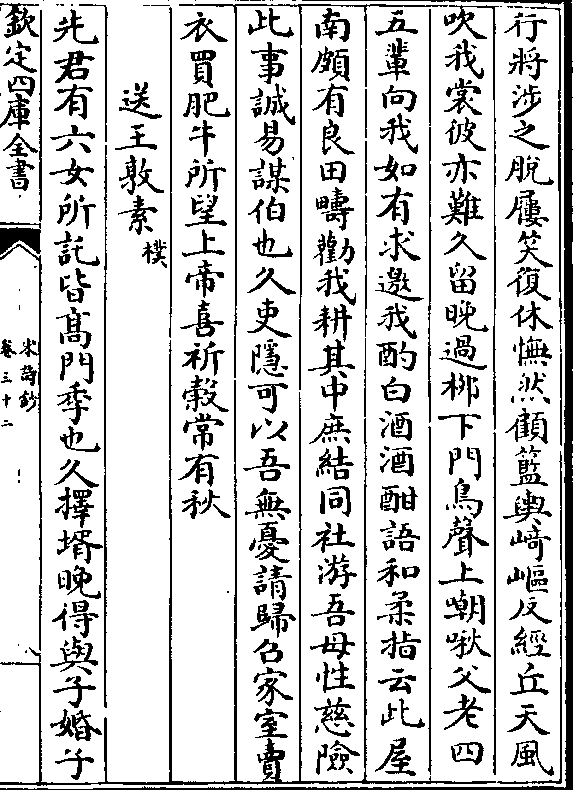 行將涉之脫屨笑復休憮然顧籃輿﨑嶇反經丘天風
吹我裳彼亦難久留晚過栁下門鳥聲上嘲啾父老四
五輩向我如有求邀我酌白酒酒酣語和柔指云此屋
南頗有良田疇勸我耕其中庶結同社游吾母性慈險
此事誠易謀伯也久吏隱可以吾無憂請歸召家室賣
衣買肥牛所望上帝喜祈穀常有秋
送王敦素樸
先君有六女所託皆髙門季也久擇壻晚得與子婚子
欽定四庫全書
宋詩鈔
卷三十二
八